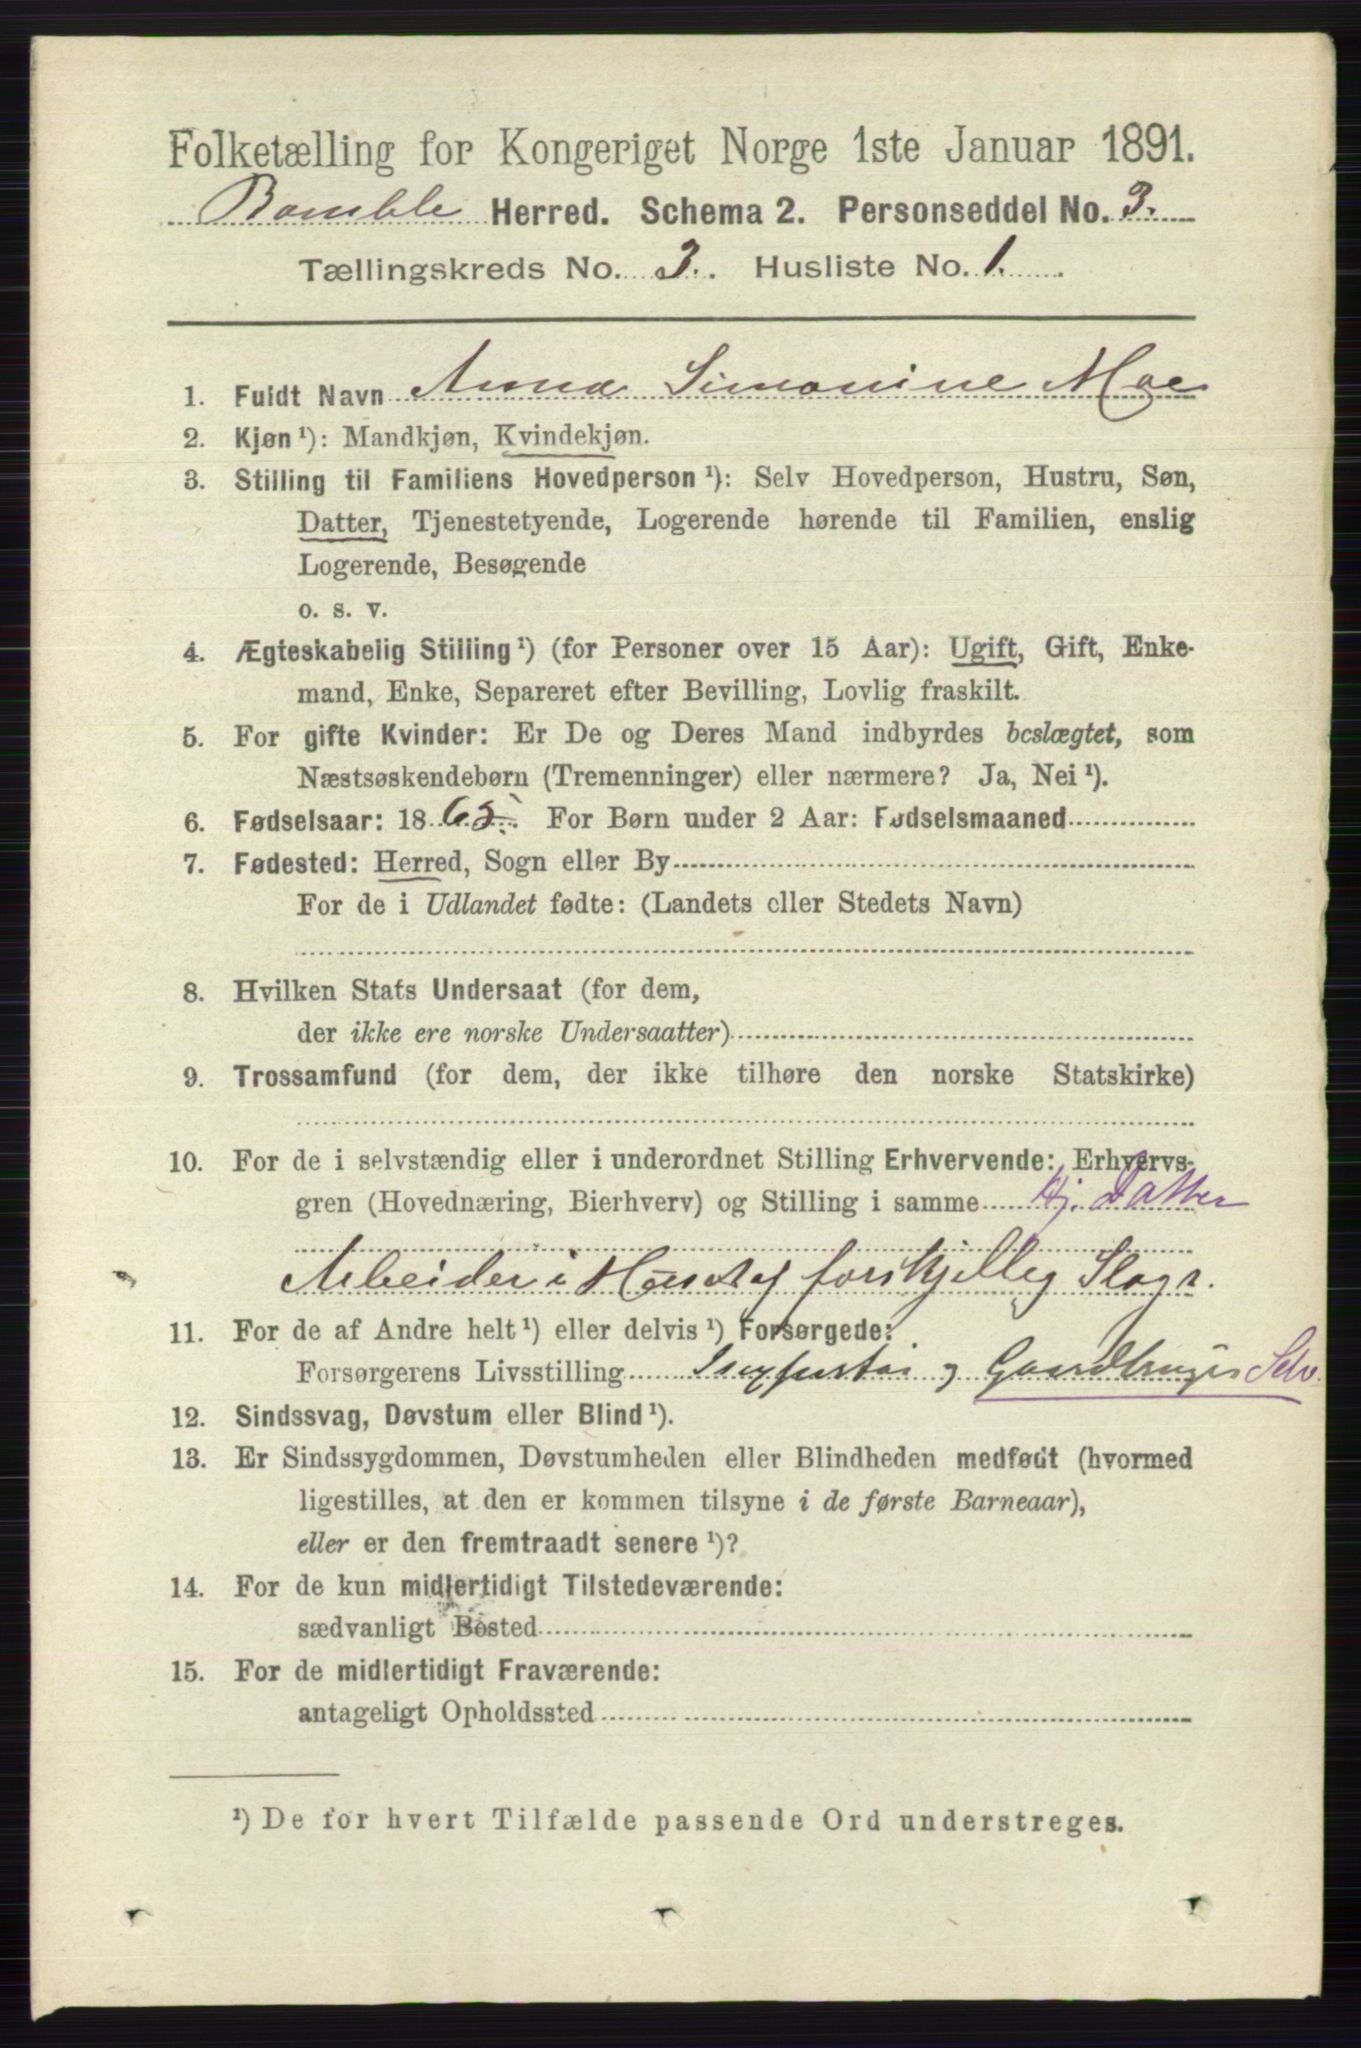 Folketælling for Kongeriget Norge 1ste Januar 1891.
Bamble Herred. Schema 2. Personseddel No. 3.
Tællingskreds No. 3. Husliste No. 1.
1. Fuldt Navn Anna Simonine Moe
2. Kjøn ¹): Mandkjøn, Kvindekjøn.
3. Stilling til Familiens Hovedperson ¹): Selv Hovedperson, Hustru, Søn,
Datter, Tjenestetyende, Logerende hørende til Familien, enslig
Logerende, Besøgende
o. s. v.
4. Ægteskabelig Stilling ¹) (for Personer over 15 Aar): Ugift, Gift, Enke-
mand, Enke, Separeret efter Bevilling, Lovlig fraskilt.
5. For gifte Kvinder: Er De og Deres Mand indbyrdes beslægtet, som
Næstsøskendebørn (Tremenninger) eller nærmere? Ja, Nei ¹).
6. Fødselsaar: 1865. For Børn under 2 Aar: Fødselsmaaned
7. Fødested: Herred, Sogn eller By
For de i Udlandet fødte: (Landets eller Stedets Navn)
8. Hvilken Stats Undersaat (for dem,
der ikke ere norske Undersaatter)
9. Trossamfund (for dem, der ikke tilhøre den norske Statskirke)
10. For de i selvstændig eller i underordnet Stilling Erhvervende: Erhvervs-
gren (Hovednæring, Bierhverv) og Stilling i samme Hj. Datter
Arbeider i Huset af forskjellig Slags.
11. For de af Andre helt ¹) eller delvis ¹) Forsørgede:
Forsørgerens Livsstilling og Gaardbruger Selv
12. Sindssvag, Døvstum eller Blind ¹).
13. Er Sindssygdommen, Døvstumheden eller Blindheden medfødt (hvormed
ligestilles, at den er kommen tilsyne i de første Barneaar),
eller er den fremtraadt senere ¹)?
14. For de kun midlertidigt Tilstedeværende:
sædvanligt Bosted
15. For de midlertidigt Fraværende:
antageligt Opholdssted
¹) De for hvert Tilfælde passende Ord understreges.